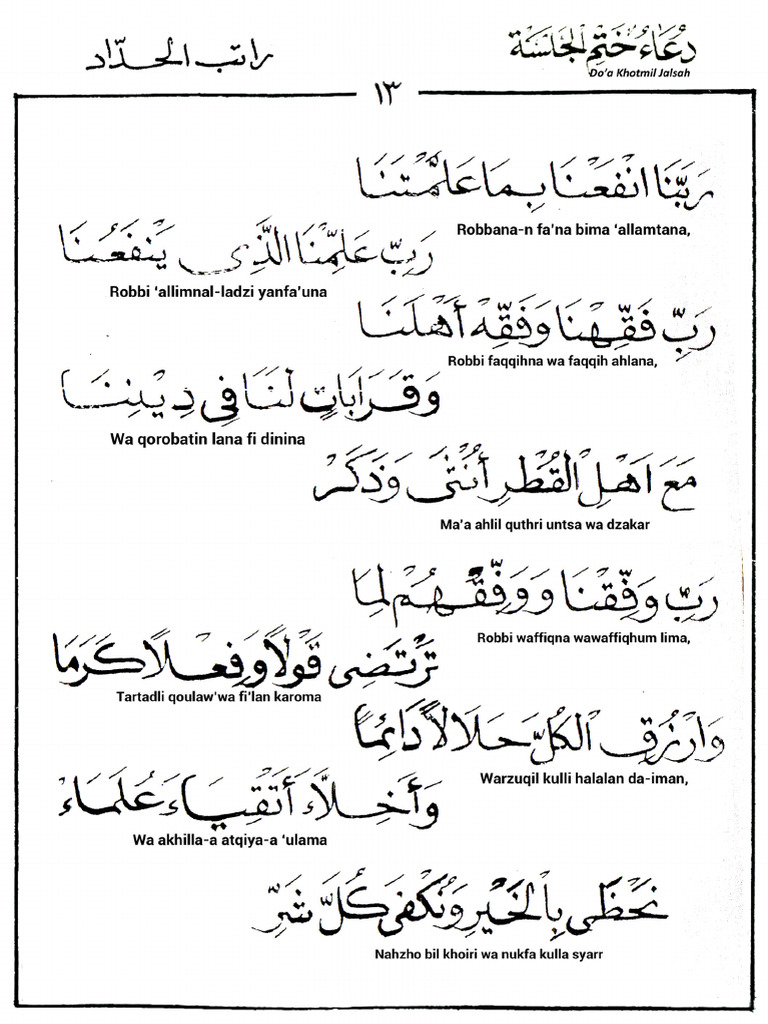 دُعَاءُ خَتْمِ الْجَلْسَةِ
Do'a Khotmil Jalsah
راتب الحدّاد
١٣
رَبَّنَا انْفَعْنَا بِمَا عَلَّمْتَنَا
Robbana-n fa'na bima 'allamtana,
رَبِّ عَلِّمْنَا الَّذِى يَنْفَعُنَا
Robbi 'allimnal-ladzi yanfa'una
رَبِّ فَقِّهْنَا وَفَقِّهْ أَهْلَنَا
Robbi faqqihna wa faqqih ahlana,
وَقَرَابَاتٍ لَنَا فِى دِيْنِنَا
Wa qorobatin lana fi dinina
مَعَ اَهْلِ الْقُطْرِ أُنْثَى وَذَكَرْ
Ma'a ahlil quthri untsa wa dzakar
رَبِّ وَفِّقْنَا وَوَفِّقْهُمْ لِمَا
Robbi waffiqna wawaffiqhum lima,
تَرْتَضِى قَوْلاً وَفِعْلاً كَرَمَا
Tartadli qoulaw'wa fi'lan karoma
وَارْزُقِ الْكُلَّ حَلَالاً دَائِمًا
Warzuqil kulli halalan da-iman,
وَأَخِلَّاءَ أَتْقِيَاءَ عُلَمَاءْ
Wa akhilla-a atqiya-a 'ulama
نَحْظَى بِالْخَيْرِ وَنُكْفَى كُلَّ شَرِّ
Nahzho bil khoiri wa nukfa kulla syarr